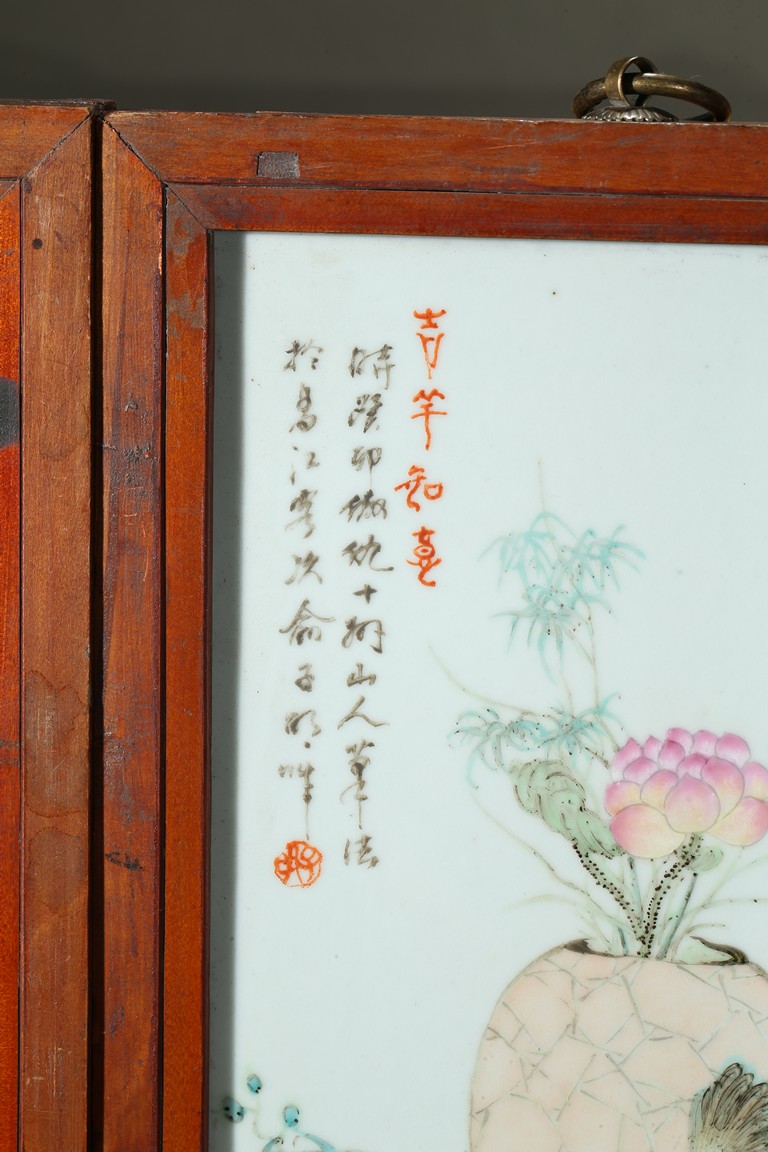 吉羊如意
時癸卯倣仇十洲山人筆法
於昌江客次俞子明作